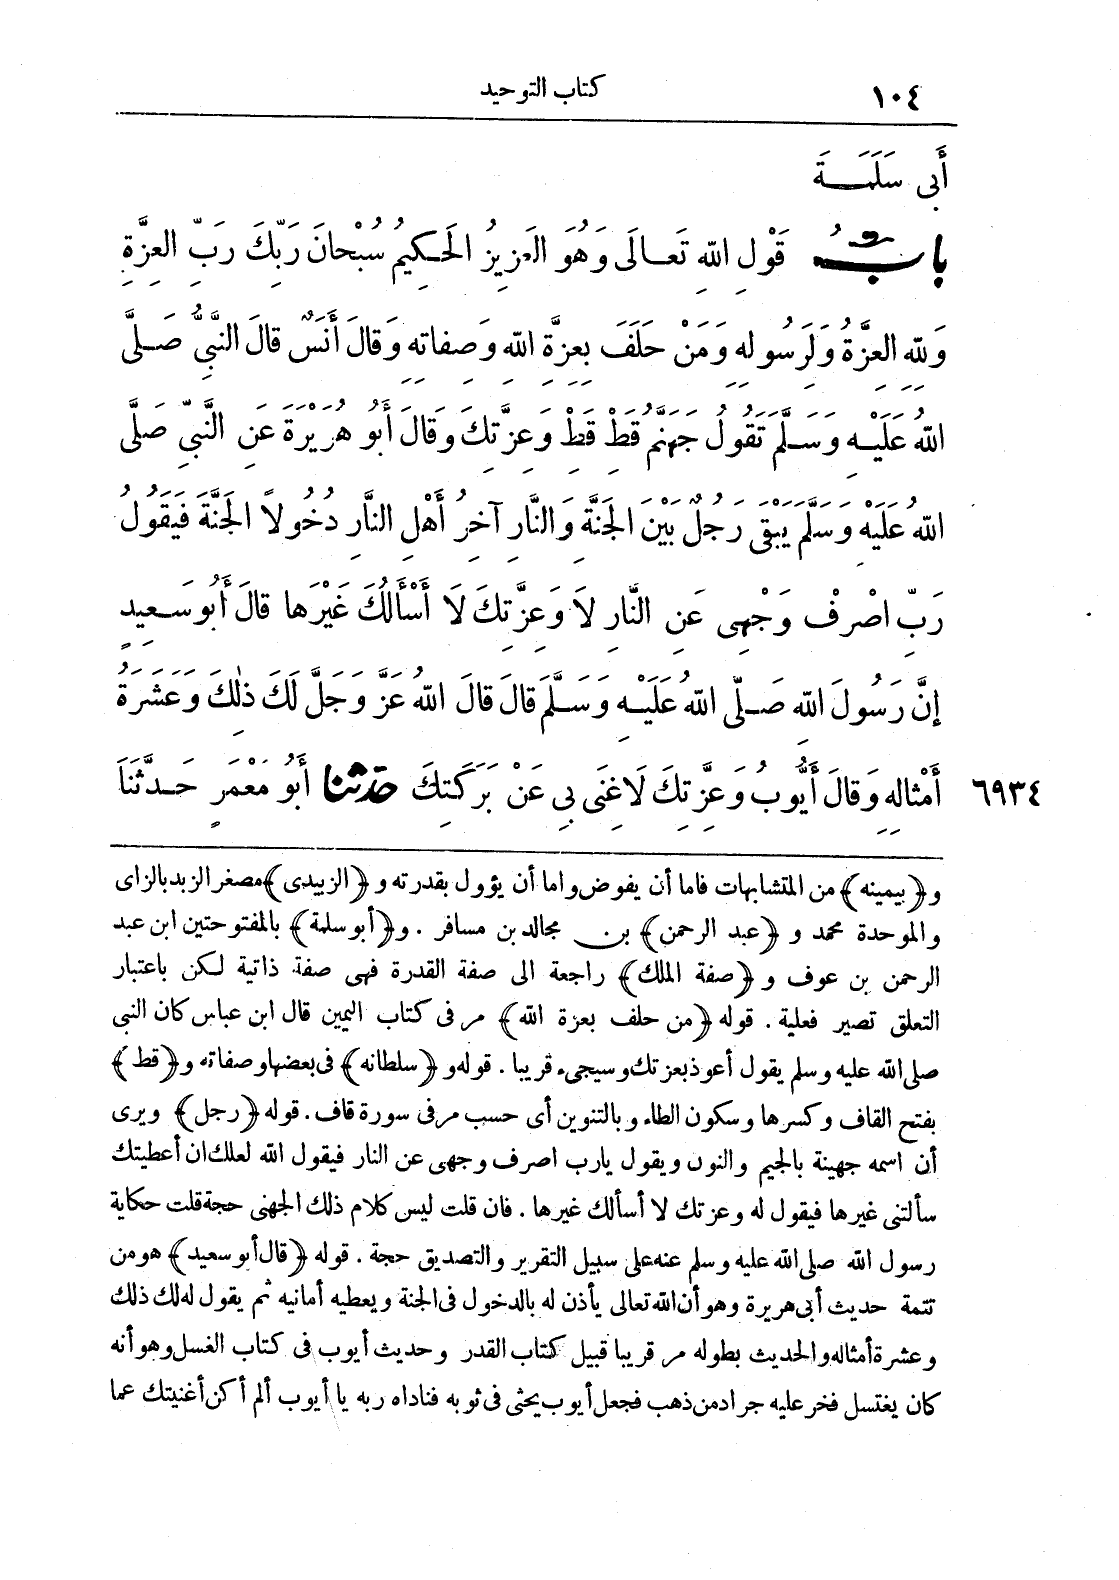 ١٠٤ كتاب التوحيد
أَبِى سَلَمَــةَ
بابُ قَوْلِ اللهِ تَعــالَى وَهُوَ العَزِيزُ الحَـكِيمُ سُبْحانَ رَبِّكَ رَبِّ العِزَّةِ
وَلِلّهِ العِزَّةُ وَلِرَسُولِهِ وَمَنْ حَلَفَ بِعِزَّةِ اللهِ وَصِفاتِهِ وَقالَ أَنَسٌ قالَ النَّبِيُّ صَــلَّى
اللهُ عَلَيْــهِ وَسَــلَّمَ تَقُولُ جَهَنَّمُ قَطْ قَطْ وَعِزَّتِكَ وَقالَ أَبُو هُرَيْرَةَ عَنِ النَّبِيِّ صَلَّى
اللهُ عَلَيْهِ وَسَلَّمَ يَبْقَى رَجُلٌ بَيْنَ الجَنَّةِ وَالنَّارِ آخِرُ أَهْلِ النَّارِ دُخُولاً الجَنَّةَ فَيَقُولُ
رَبِّ اصْرِفْ وَجْهِى عَنِ النَّارِ لاَ وَعِزَّتِكَ لاَ أَسْأَلُكَ غَيْرَها قالَ أَبُو سَــعِيدٍ
إِنَّ رَسُولَ اللهِ صَــلَّى اللهُ عَلَيْــهِ وَسَــلَّمَ قالَ قالَ اللهُ عَزَّ وَجَلَّ لَكَ ذٰلِكَ وَعَشَرَةُ
أَمْثالِهِ وَقالَ أَيُّوبُ وَعِزَّتِكَ لاَغِنَى بِى عَنْ بَرَكَتِكَ حَدَّثَنا أَبُو مَعْمَرٍ حَــدَّثَنَا ٦٩٣٤
و﴿بيمينه﴾ من المتشابهات فاما أن يفوض واما أن يؤول بقدرته و﴿الزبيدى﴾ مصغر الزبد بالزاى
والموحدة محمد و﴿عبد الرحمن﴾ بن مجالد بن مسافر . و﴿أبو سلمة﴾ بالمفتوحتين ابن عبد
الرحمن بن عوف و﴿صفة الملك﴾ راجعة الى صفة القدرة فهى صفة ذاتية لكن باعتبار
التعلق تصير فعلية . قوله ﴿من حلف بعزة الله﴾ مر فى كتاب اليمين قال ابن عباس كان النبي
صلى الله عليه وسلم يقول أعوذ بعزتك وسيجىء قريبا . قوله و﴿سلطانه﴾ فى بعضها وصفاته و﴿قط﴾
بفتح القاف وكسرها وسكون الطاء وبالتنوين أى حسب مر فى سورة قاف . قوله ﴿رجل﴾ ويرى
أن اسمه جهينة بالجيم والنون ويقول يارب اصرف وجهى عن النار فيقول الله لعلك ان أعطيتك
سألتنى غيرها فيقول له وعزتك لا أسألك غيرها . فان قلت ليس كلام ذلك الجهنى حجة قلت حكاية
رسول الله صلى الله عليه وسلم عنه على سبيل التقرير والتصديق حجة . قوله ﴿قال أبو سعيد﴾ هو من
تتمة حديث أبى هريرة وهو أن الله تعالى يأذن له بالدخول فى الجنة ويعطيه أمانيه ثم يقول له لك ذلك
وعشرة أمثاله والحديث بطوله مر قريبا قبيل كتاب القدر وحديث أيوب فى كتاب الغسل وهو أنه
كان يغتسل فخر عليه جراد من ذهب فجعل أيوب يحثى فى ثوبه فناداه ربه يا أيوب ألم أكن أغنيتك عما